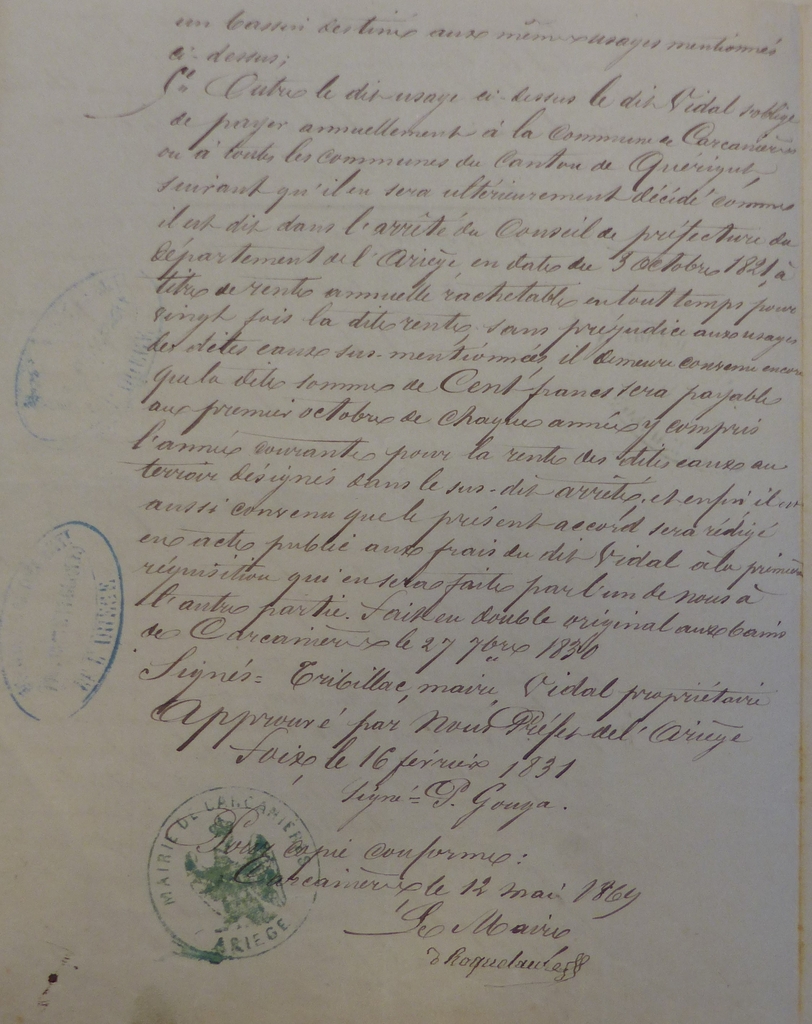 un bassin destiné aux mêmes usages mentionnés
ci-dessus;
5° Outre le dit usage ci-dessus le dit Vidal s'oblige
de payer annuellement à la Commune de Carcanières
ou à toutes les communes du Canton de Quérigut
suivant qu'il en sera ultérieurement décidé comme
il est dit dans l'arrêté du Conseil de préfecture du
département de l'Ariège, en date du 3 octobre 1821, à
titre de rente annuelle rachetable en tout temps pour
vingt fois la dite rente, sans préjudice aux usages
des dites eaux sus-mentionnés, il demeure convenu encore
que la dite somme de Cent francs sera payable
au premier octobre de chaque année y compris
l'année courante pour la rente des dites eaux au
terroir désignés dans le sus-dit arrêté, et enfin il est
aussi convenu que le présent accord sera rédigé
en acte public aux frais du dit Vidal à la première
réquisition qui en sera faite par l'un de nous à
l'autre partie. Fait en double original aux bains
de Carcanières le 27 7bre 1830
Signés = Tribillac, maire, Vidal propriétaire
Approuvé par Nous Préfet de l'Ariège
Foix, le 16 février 1831
Signé = P. Gouga.
Pour copie conforme:
Carcanières le 12 mai 1869
Le Maire
d Roquelaure
MAIRIE DE CARCANIÈRES
ARIEGE
DE L'ARIEGE